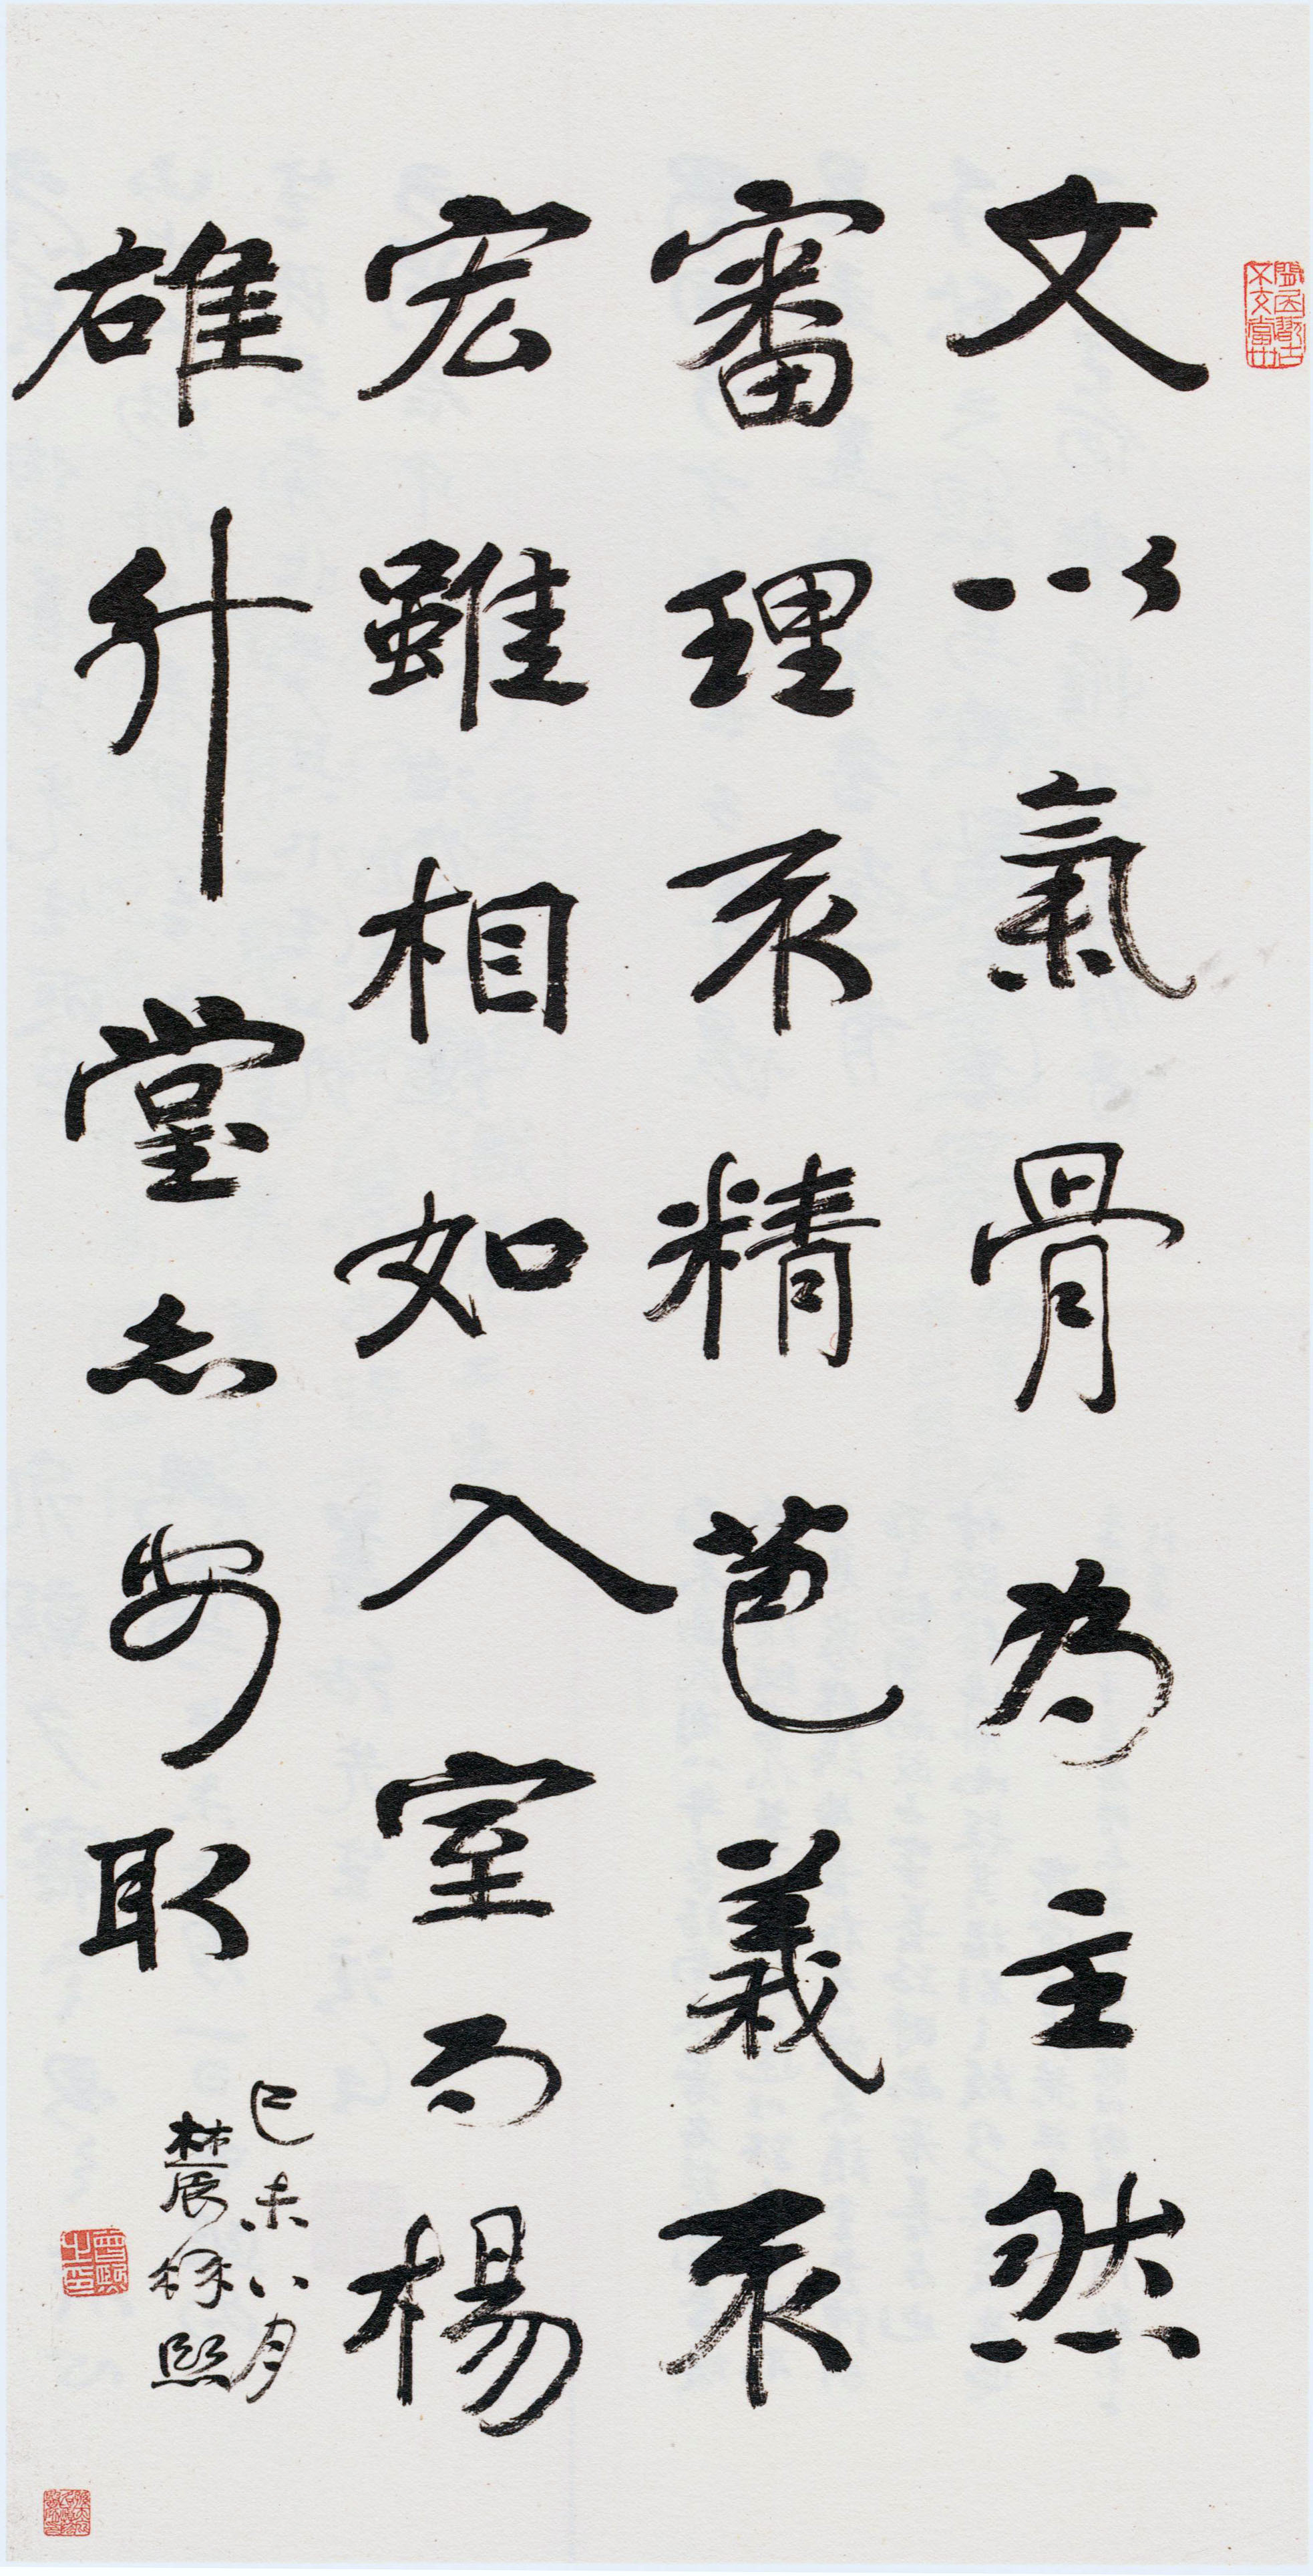 文以氣骨為主然
審理不精苞義不
宏雖相如入室而楊
雄升堂亦安取
己未八月
農髯熙
曾熙之印